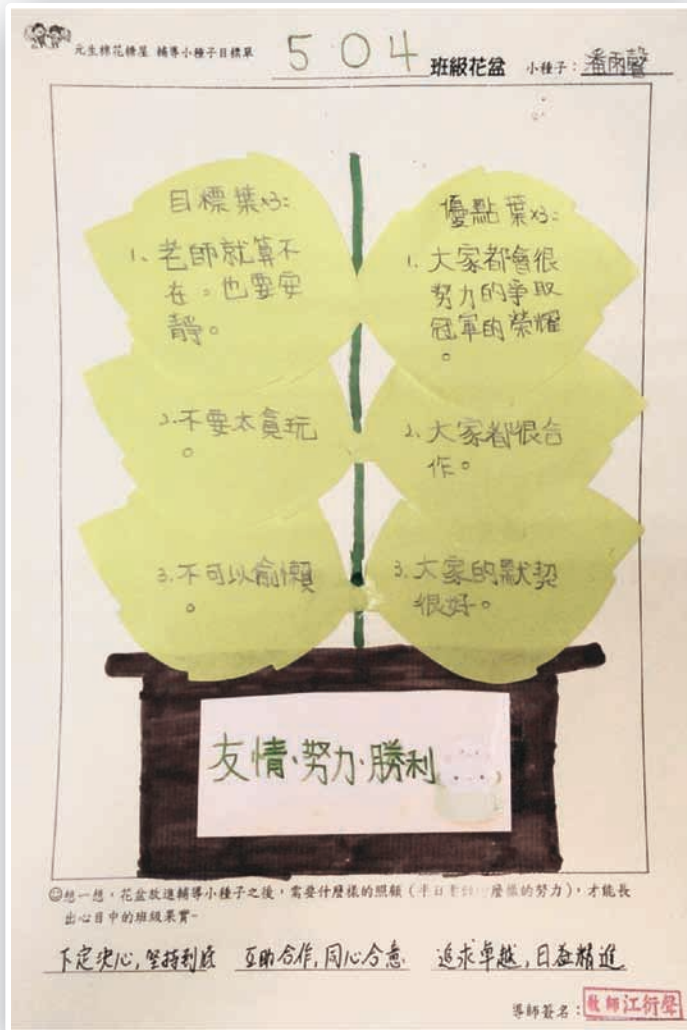 元生棉花糖屋 輔導小種子目標單 504 班級花盆 小種子：潘雨聲
目標葉x3：
1、老師就算不
在。也要安
靜。
2.不要太貪玩
。
3.不可以偷懶
。
優點葉x3：
1、大家都會很
努力的爭取
冠軍的榮耀
。
2、大家都很合
作。
3、大家的默契
很好。
友情、努力、勝利
想一想，花盆放進輔導小種子之後，需要什麼樣的照顧（平日要做 麼樣的努力），才能長
出心目中的班級果實~
下定決心，堅持到底 互助合作，同心合意 追求卓越，日益精進
導師簽名：教師江衍聲